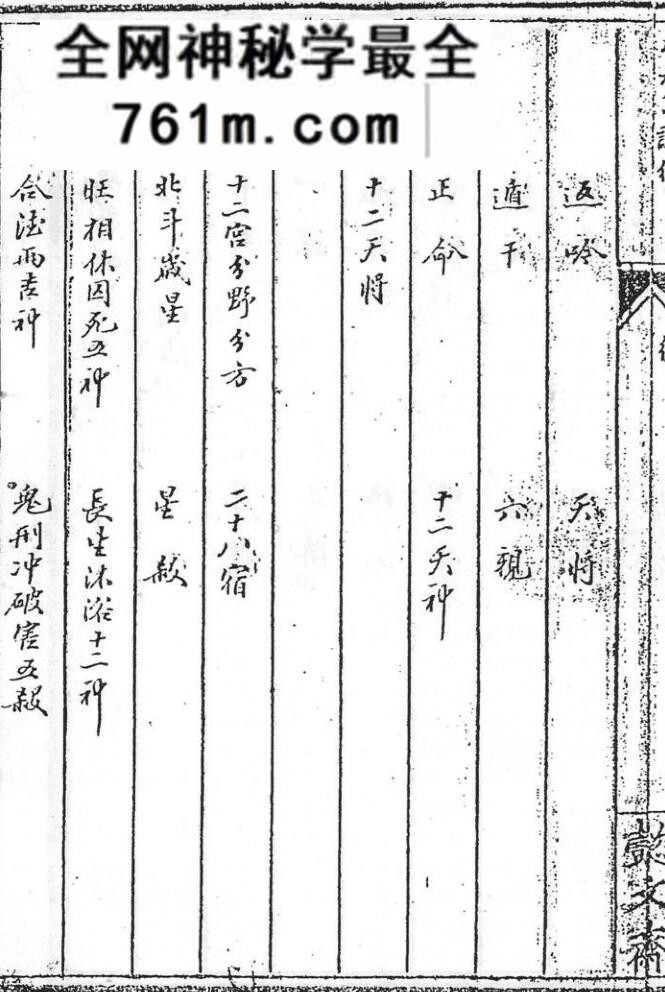 全网神秘学最全
761m.com
返吟 天将
遁干 六親
正命 十二天神
十二天将
十二宫分野分方 二十八宿
北斗歲星 星殺
旺相休囚死五神 長生沐浴十二神
合德两吉神 鬼刑冲破害五殺
懿文齋